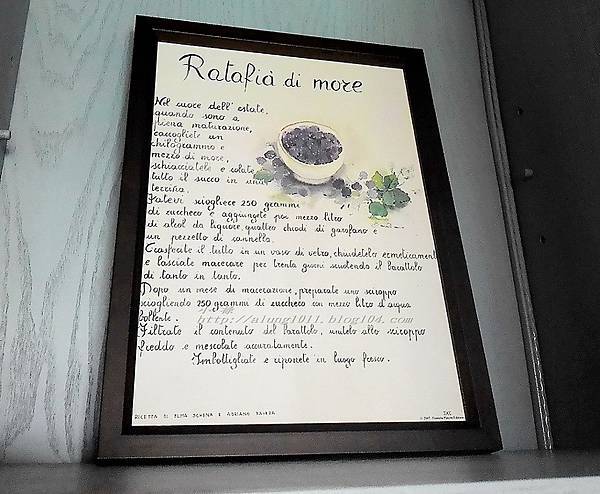 Ratafià di more
Nel cuore dell' estate,
quando sono a
piena maturazione,
raccogliete un
chilogrammo e
mezzo di more,
schiacciatele e colate
tutto il succo in una
terrina.
Fatevi sciogliere 250 grammi
di zucchero e aggiungete poi mezzo litro
di alcol da liquore, quattro chiodi di garofano e
un pezzetto di cannella.
Trasferite il tutto in un vaso di vetro, chiudetelo ermeticamente
e lasciate macerare per trenta giorni scuotendo il barattolo
di tanto in tanto.
Dopo un mese di macerazione, preparate uno sciroppo
sciogliendo 250 grammi di zucchero con mezzo litro d'acqua
bollente.
http://alung1011.blog104.com/
Filtrate il contenuto del barattolo, unitelo allo sciroppo
freddo e mescolate accuratamente.
Imbottigliate e riponete in luogo fresco.
RICETTA DI ALMA SCHENA E ADRIANO RAVERA